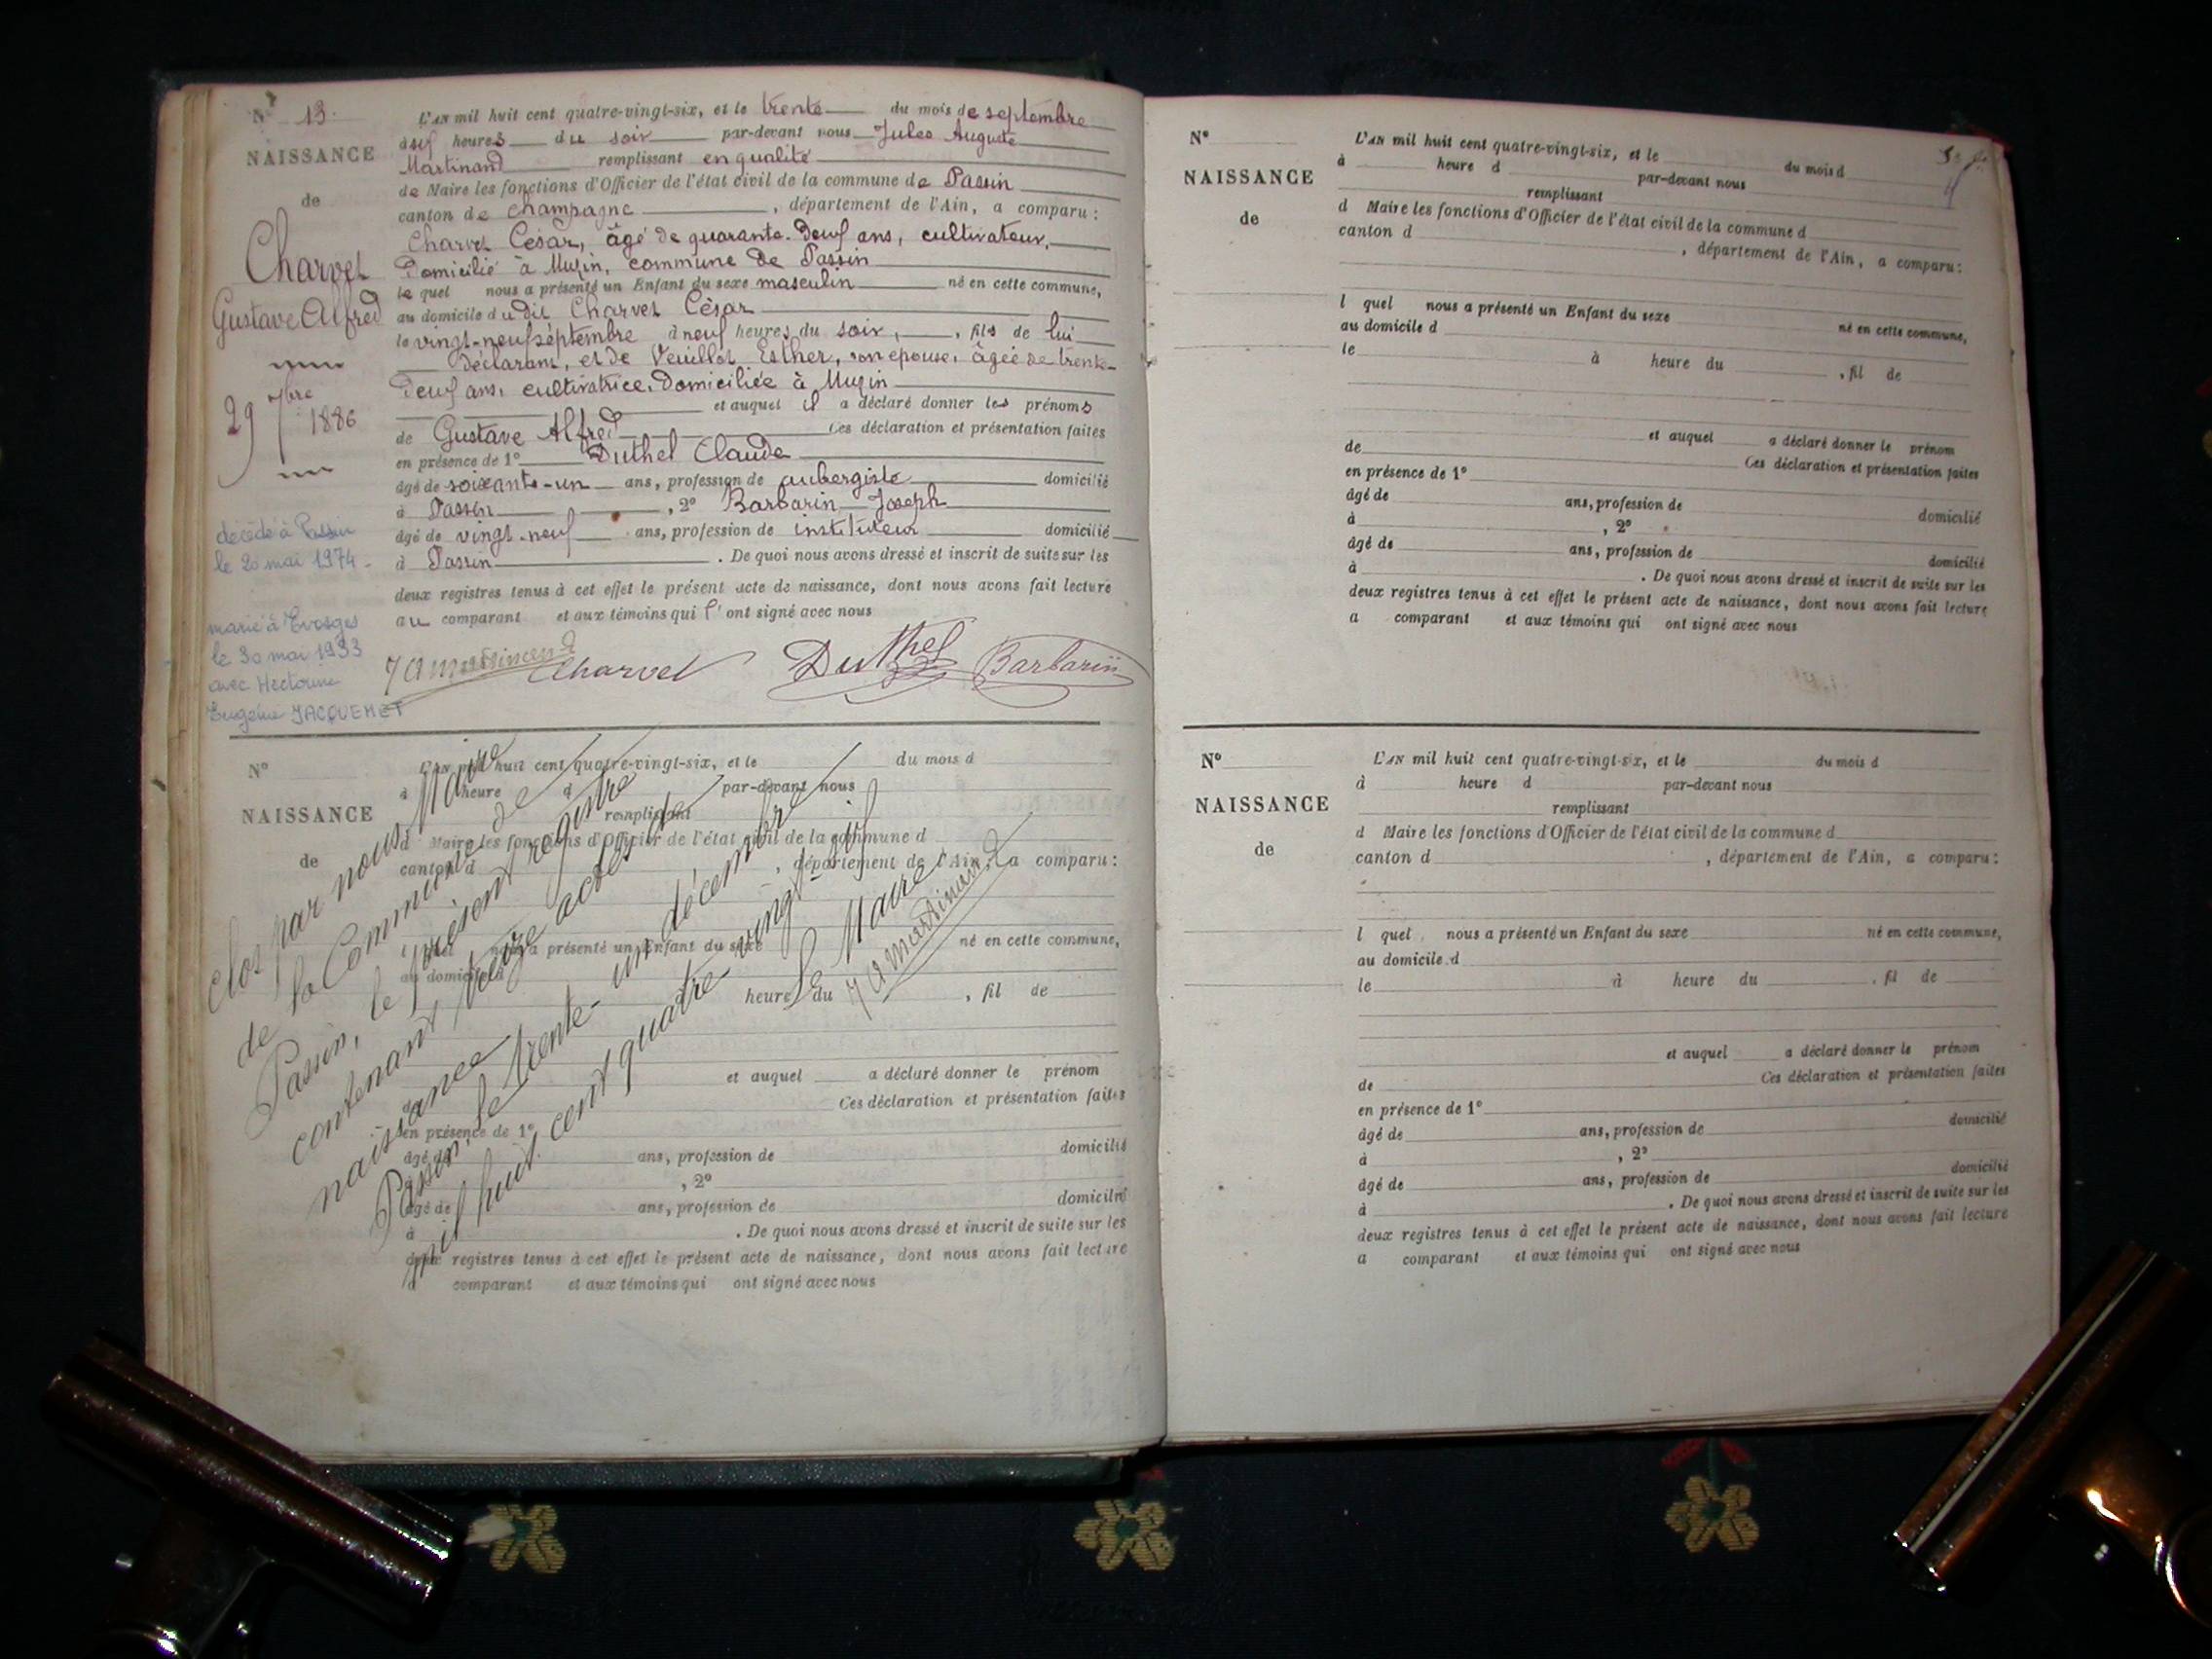 N° 13.
NAISSANCE
de
Charvet
Gustave Alfred
29 7bre 1886
décédé à Passin
le 20 mai 1974 -
marié à Evosges
le 30 mai 1933
avec Hectorine
Eugénie JACQUEMET
L'AN mil huit cent quatre-vingt-six, et le trente du mois de septembre
à six heures du soir par-devant nous Jules Auguste
Martinand remplissant en qualité
de Maire les fonctions d'Officier de l'état civil de la commune de Passin
canton de Champagne, département de l'Ain, a comparu :
Charvet César, âgé de quarante-deux ans, cultivateur,
domicilié à Muzin, commune de Passin
le quel nous a présenté un Enfant du sexe masculin né en cette commune,
au domicile dudit Charvet César
le vingt-neuf septembre à neuf heures du soir, , fils de lui
déclarant, et de Veuillet Esther, son épouse, âgée de trente-
deux ans, cultivatrice, domiciliée à Muzin
et auquel il a déclaré donner les prénoms
de Gustave Alfred Ces déclaration et présentation faites
en présence de 1° Duthel Claude
âgé de soixante-un ans, profession de aubergiste domicilié
à Passin , 2° Barbarin Joseph
âgé de vingt-neuf ans, profession de instituteur domicilié
à Passin . De quoi nous avons dressé et inscrit de suite sur les
deux registres tenus à cet effet le présent acte de naissance, dont nous avons fait lecture
au comparant et aux témoins qui l'ont signé avec nous
J A Martinand Charvet Duthel Barbarin
N°
NAISSANCE
de
L'AN mil huit cent quatre-vingt-six, et le du mois d
à heure d par-devant nous
remplissant
d Maire les fonctions d'Officier de l'état civil de la commune d
canton d , département de l'Ain, a comparu :
l quel nous a présenté un Enfant du sexe né en cette commune,
au domicile d
heure du , fil de
et auquel a déclaré donner le prénom
de Ces déclaration et présentation faites
en présence de 1°
âgé de ans, profession de domicilié
à , 2°
âgé de ans, profession de domicilié
à . De quoi nous avons dressé et inscrit de suite sur les
deux registres tenus à cet effet le présent acte de naissance, dont nous avons fait lecture
a comparant et aux témoins qui ont signé avec nous
Clos par nous Maire
de la Commune de
Passin, le présent registre
contenant treize actes de
naissance
Passin, le trente-un décembre
mil huit cent quatre-vingt-six
Le Maire
J A Martinand
N°
NAISSANCE
de
L'AN mil huit cent quatre-vingt-six, et le du mois d
à heure d par-devant nous
remplissant
d Maire les fonctions d'Officier de l'état civil de la commune d
canton d , département de l'Ain, a comparu :
l quel nous a présenté un Enfant du sexe né en cette commune,
au domicile d
le à heure du , fil de
et auquel a déclaré donner le prénom
de Ces déclaration et présentation faites
en présence de 1°
âgé de ans, profession de domicilié
à , 2°
âgé de ans, profession de domicilié
à . De quoi nous avons dressé et inscrit de suite sur les
deux registres tenus à cet effet le présent acte de naissance, dont nous avons fait lecture
a comparant et aux témoins qui ont signé avec nous
N°
NAISSANCE
de
L'AN mil huit cent quatre-vingt-six, et le du mois d
à heure d par-devant nous
remplissant
d Maire les fonctions d'Officier de l'état civil de la commune d
canton d , département de l'Ain, a comparu :
l quel nous a présenté un Enfant du sexe né en cette commune,
au domicile d
le à heure du , fil de
et auquel a déclaré donner le prénom
de Ces déclaration et présentation faites
en présence de 1°
âgé de ans, profession de domicilié
à , 2°
âgé de ans, profession de domicilié
à . De quoi nous avons dressé et inscrit de suite sur les
deux registres tenus à cet effet le présent acte de naissance, dont nous avons fait lecture
a comparant et aux témoins qui ont signé avec nous